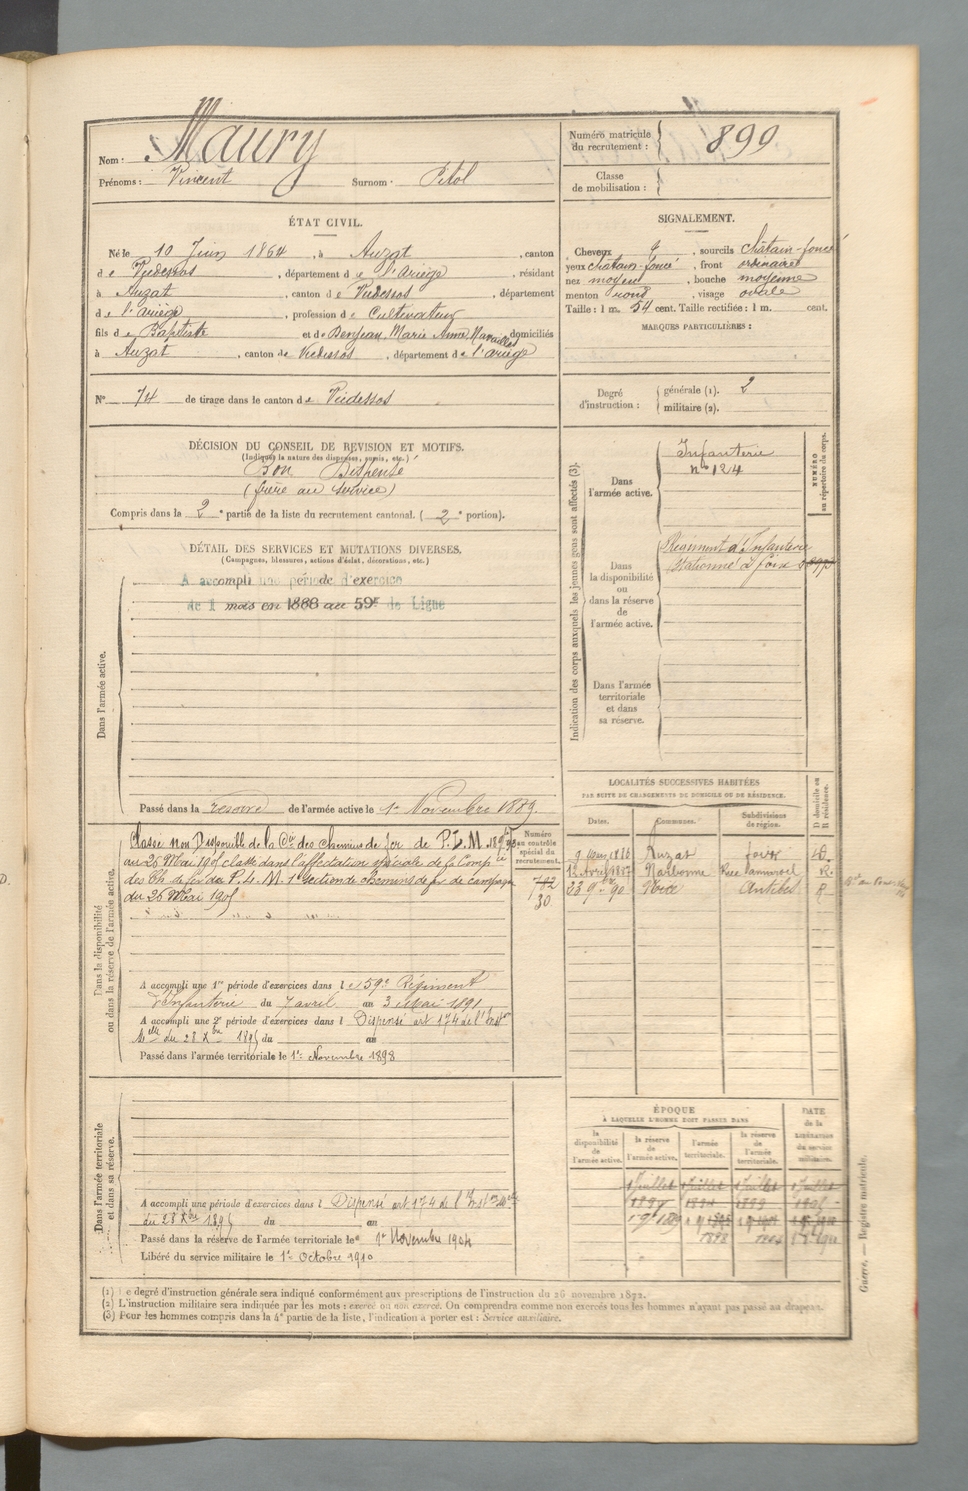 Nom : Maury
Prénoms : Vincent Surnom : Pitol
Numéro matricule du recrutement : 899
Classe de mobilisation :
ÉTAT CIVIL.
Né le 10 Juin 1864, à Auzat, canton
de Vicdessos, département de l'Ariège, résidant
à Auzat, canton de Vicdessos, département
de l'Ariège, profession de Cultivateur
fils de Baptiste et de Denjean Marie Anne domiciliés
à Auzat, canton de Vicdessos, département de l'Ariège
N° 74 de tirage dans le canton de Vicdessos
SIGNALEMENT.
Cheveux, sourcils châtain-foncé
yeux châtain-foncé, front ordinaire
nez moyen, bouche moyenne
menton rond, visage ovale
Taille : 1 m. 54 cent. Taille rectifiée : 1 m. cent.
MARQUES PARTICULIÈRES :
Degré d'instruction : générale (1). 2
militaire (2).
DÉCISION DU CONSEIL DE REVISION ET MOTIFS.
(Indiquer la nature des dispenses, sursis, etc.)
Bon Dispensé
(frère au service)
Compris dans la 2e partie de la liste du recrutement cantonal. (2e portion).
DÉTAIL DES SERVICES ET MUTATIONS DIVERSES.
(Campagnes, blessures, actions d'éclat, décorations, etc.)
Dans l'armée active.
A accompli une période d'exercice
de 1 mois en 1888 au 59e de Ligne
Passé dans la réserve de l'armée active le 1er Novembre 1889.
Indication des corps auxquels les jeunes gens sont affectés (3).
NUMÉRO au répertoire du corps.
Dans l'armée active.
Infanterie
n° 124
Dans la disponibilité ou dans la réserve de l'armée active.
Régiment d'Infanterie
stationné à Foix
Dans l'armée territoriale et dans sa réserve.
Dans la disponibilité ou dans la réserve de l'armée active.
Numéro au contrôle spécial du recrutement.
Classé non Disponible de la Cie des chemins de fer de P.L.M.
au 26 Mai 1905 classé dans l'affectation spéciale de la Compie
des Ch. de fer du P.L.M. 1e section de chemins de fer de campagne
du 26 Mai 1905
782
30
A accompli une 1re période d'exercices dans le 59e Régiment
d'Infanterie du 7 avril au 3 Mai 1891
A accompli une 2e période d'exercices dans l Dispensé art 174 de l'Inston
Mlle du 28 Xbre 1895 du au
Passé dans l'armée territoriale le 1er Novembre 1898
LOCALITÉS SUCCESSIVES HABITÉES
PAR SUITE DE CHANGEMENTS DE DOMICILE OU DE RÉSIDENCE.
Dates. Communes. Subdivisions de région. D domicile ou R résidence.
9 Mars 1886 Auzat Foix D.
Narbonne R.
Nice Antibes R
Dans l'armée territoriale et dans sa réserve.
A accompli une période d'exercices dans l Dispensé art 174 de l'Inston Mlle
du 28 Xbre 1895 du au
Passé dans la réserve de l'armée territoriale le 1er Novembre 1904
Libéré du service militaire le 1er Octobre 1910
ÉPOQUE
À LAQUELLE L'HOMME DOIT PASSER DANS
la disponibilité de l'armée active. la réserve de l'armée active. l'armée territoriale. la réserve de l'armée territoriale.
DATE de la LIBÉRATION du service militaire.
1 Juillet 1 Juillet 1 Juillet 1 Juillet
1898 1904
(1) Le degré d'instruction générale sera indiqué conformément aux prescriptions de l'instruction du 26 novembre 1872.
(2) L'instruction militaire sera indiquée par les mots : exercé ou non exercé. On comprendra comme non exercés tous les hommes n'ayant pas passé au drapeau.
(3) Pour les hommes compris dans la 4e partie de la liste, l'indication à porter est : Service auxiliaire.
Guerre. — Registre matricule.